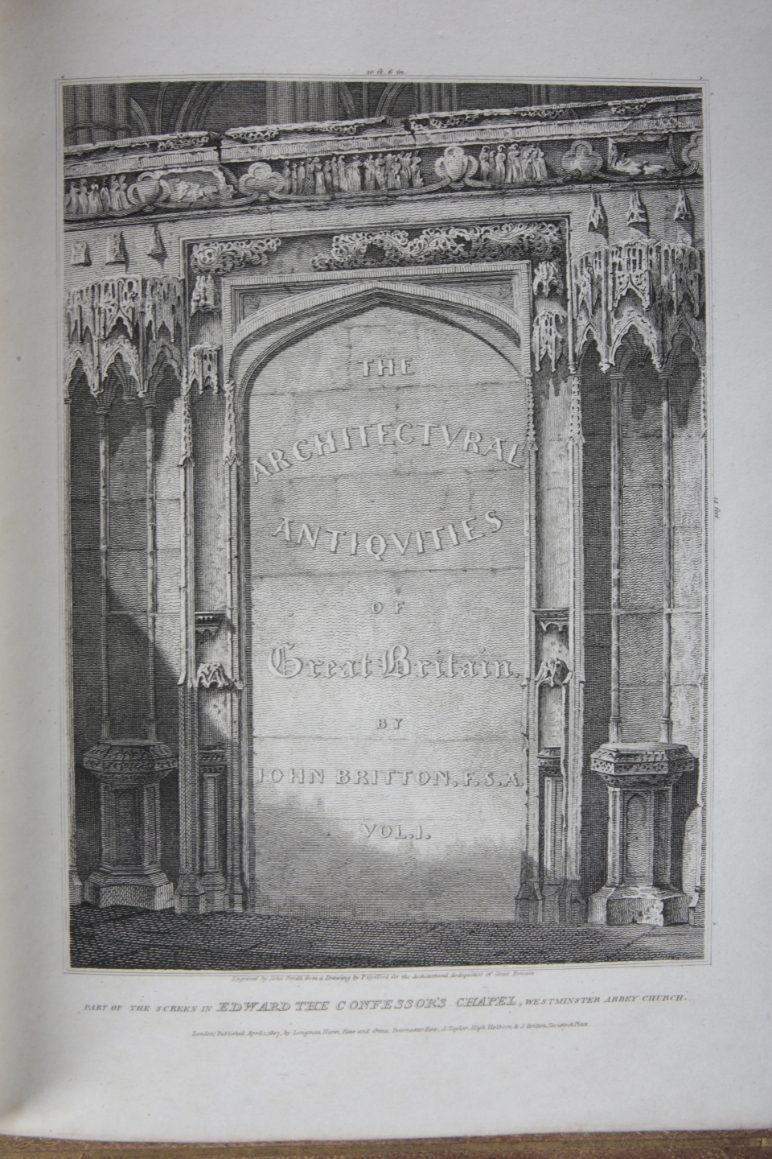 10 ft. 6 in.
THE
ARCHITECTVRAL
ANTIQVITIES
OF
Great Britain.
BY
JOHN BRITTON, F.S.A.
VOL. I.
Engraved by John Smith, from a Drawing by for the Architectural Antiquities of Great Britain
PART OF THE SCREEN IN EDWARD THE CONFESSOR'S CHAPEL, WESTMINSTER ABBEY CHURCH.
London, Published April 1, 1807, by Longman, Hurst, Rees and Orme, Paternoster Row, J. Taylor, High Holborn, & J. Britton, Tavistock Place.